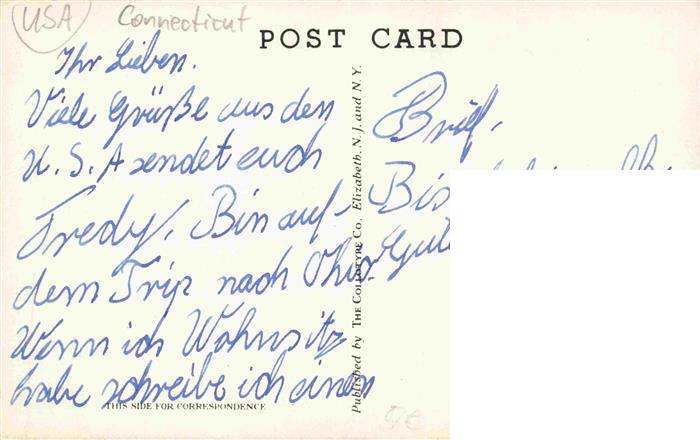 USA Connecticut
POST CARD
Ihr Lieben.
Viele Grüße aus den
U.S.A sendet euch
Fredy. Bin auf
dem Trip nach Ohio.
Wenn ich Wohnsitz
habe schreibe ich einen
Brief.
Bis
THIS SIDE FOR CORRESPONDENCE
Published by THE COLLOTYPE CO. Elizabeth, N. J. and N. Y.